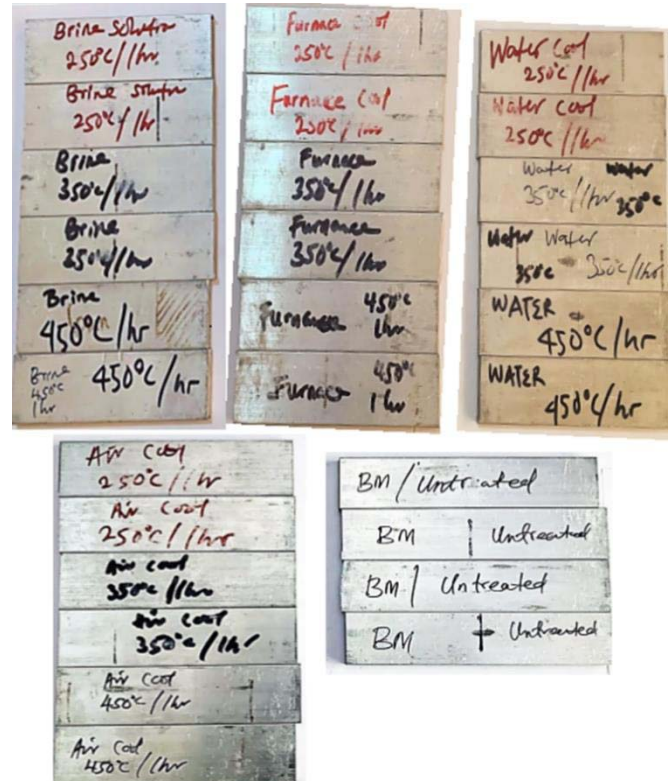 Brine Solution
250°C/1hr
Brine Solution
250°C/1hr
Brine
350°C/1hr
Brine
350°C/1hr
Brine
450°C/hr
Brine
450°C
1hr
450°C/hr
Furnace Cool
250°C/1hr
Furnace Cool
250°C/1hr
Furnace
350°C/1hr
Furnace
350°C/1hr
Furnace
450°C
1hr
Furnace
450°C
1hr
Water Cool
250°C/1hr
Water Cool
250°C/1hr
Water Water
350°C/1hr 350°C
Water Water
350°C 350°C/1hr
WATER
450°C/hr
WATER
450°C/hr
Air Cool
250°C/1hr
Air Cool
250°C/1hr
Air Cool
350°C/1hr
Air Cool
350°C/1hr
Air Cool
450°C/1hr
Air Cool
450°C/1hr
BM / Untreated
BM | Untreated
BM / Untreated
BM Untreated